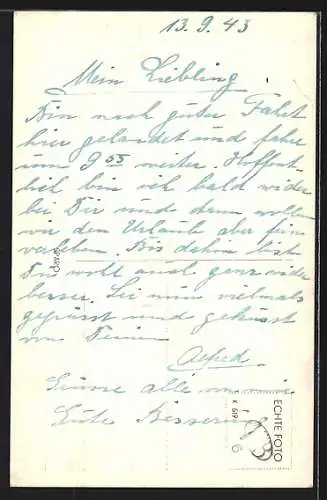 13.9.43
Mein Liebling
Bin nach guter Fahrt
hier gelandet und fahre
um 9 53 weiter. Hoffent-
lich bin ich bald wieder
bei Dir und dann wollen
wir den Urlaub aber fein
verleben. Bis dahin bist
Du wohl auch ganz wieder
besser. Sei nun vielmals
gegrüsst und geküsst
von Deinem
Alfred
Grüsse alle von mir.
Gute Besserung
ECHTE FOTO
K 619
6